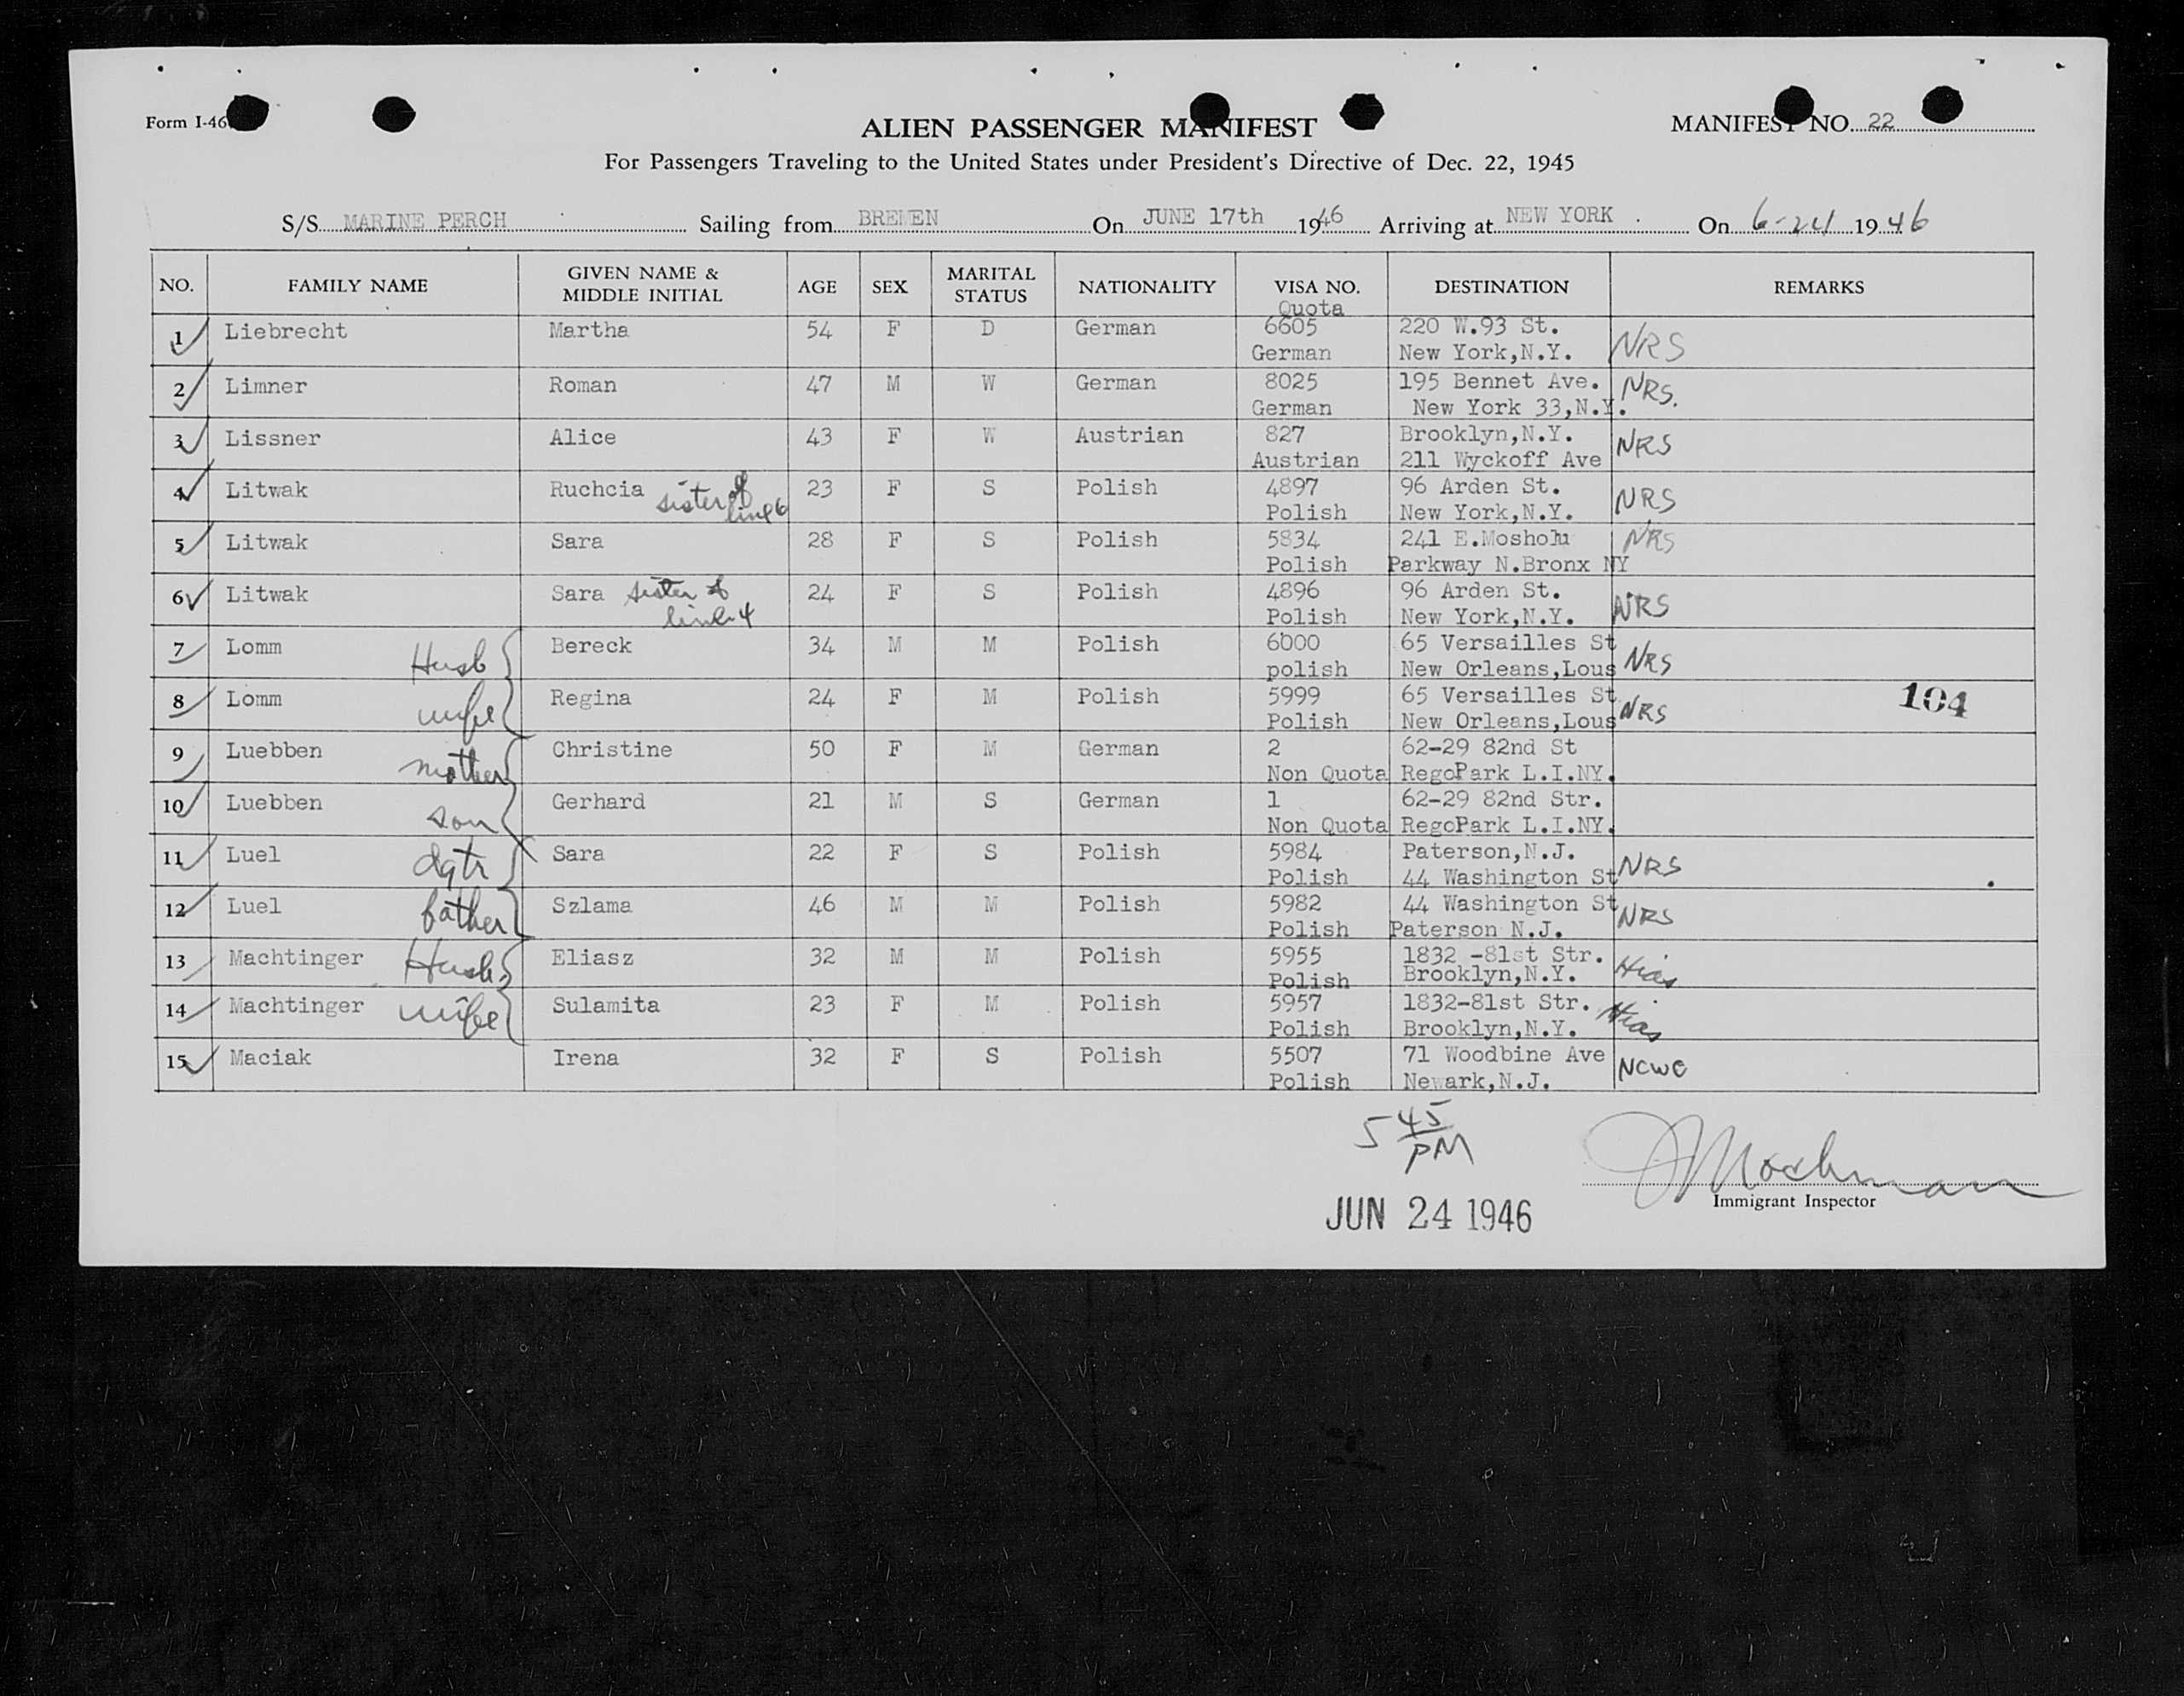 Form I-46
ALIEN PASSENGER MANIFEST
MANIFEST NO. 22
For Passengers Traveling to the United States under President's Directive of Dec. 22, 1945
S/S MARINE PERCH Sailing from BREMEN On JUNE 17th 1946 Arriving at NEW YORK . On 6-24 1946
NO. FAMILY NAME GIVEN NAME & MIDDLE INITIAL AGE SEX MARITAL STATUS NATIONALITY VISA NO. DESTINATION REMARKS
Quota
1 Liebrecht Martha 54 F D German 6605 220 W.93 St. NRS
German New York,N.Y.
2 Limner Roman 47 M W German 8025 195 Bennet Ave. NRS.
German New York 33,N.Y.
3 Lissner Alice 43 F W Austrian 827 Brooklyn,N.Y. NRS
Austrian 211 Wyckoff Ave
4 Litwak Ruchcia sister of line 6 23 F S Polish 4897 96 Arden St. NRS
Polish New York,N.Y.
5 Litwak Sara 28 F S Polish 5834 241 E.Mosholu NRS
Polish Parkway N.Bronx NY
6 Litwak Sara sister of line 4 24 F S Polish 4896 96 Arden St. NRS
Polish New York,N.Y.
7 Lomm Husb Bereck 34 M M Polish 6000 65 Versailles St NRS
polish New Orleans,Lous
8 Lomm wife Regina 24 F M Polish 5999 65 Versailles St NRS 104
Polish New Orleans,Lous
9 Luebben mother Christine 50 F M German 2 62-29 82nd St
Non Quota RegoPark L.I.NY.
10 Luebben son Gerhard 21 M S German 1 62-29 82nd Str.
Non Quota RegoPark L.I.NY.
11 Luel dgtr Sara 22 F S Polish 5984 Paterson,N.J. NRS
Polish 44 Washington St
12 Luel father Szlama 46 M M Polish 5982 44 Washington St NRS
Polish Paterson N.J.
13 Machtinger Husb. Eliasz 32 M M Polish 5955 1832 -81st Str. Hias
Polish Brooklyn,N.Y.
14 Machtinger wife Sulamita 23 F M Polish 5957 1832-81st Str. Hias
Polish Brooklyn,N.Y.
15 Maciak Irena 32 F S Polish 5507 71 Woodbine Ave NCWC
Polish Newark,N.J.
5 45 PM
JMochman
Immigrant Inspector
JUN 24 1946